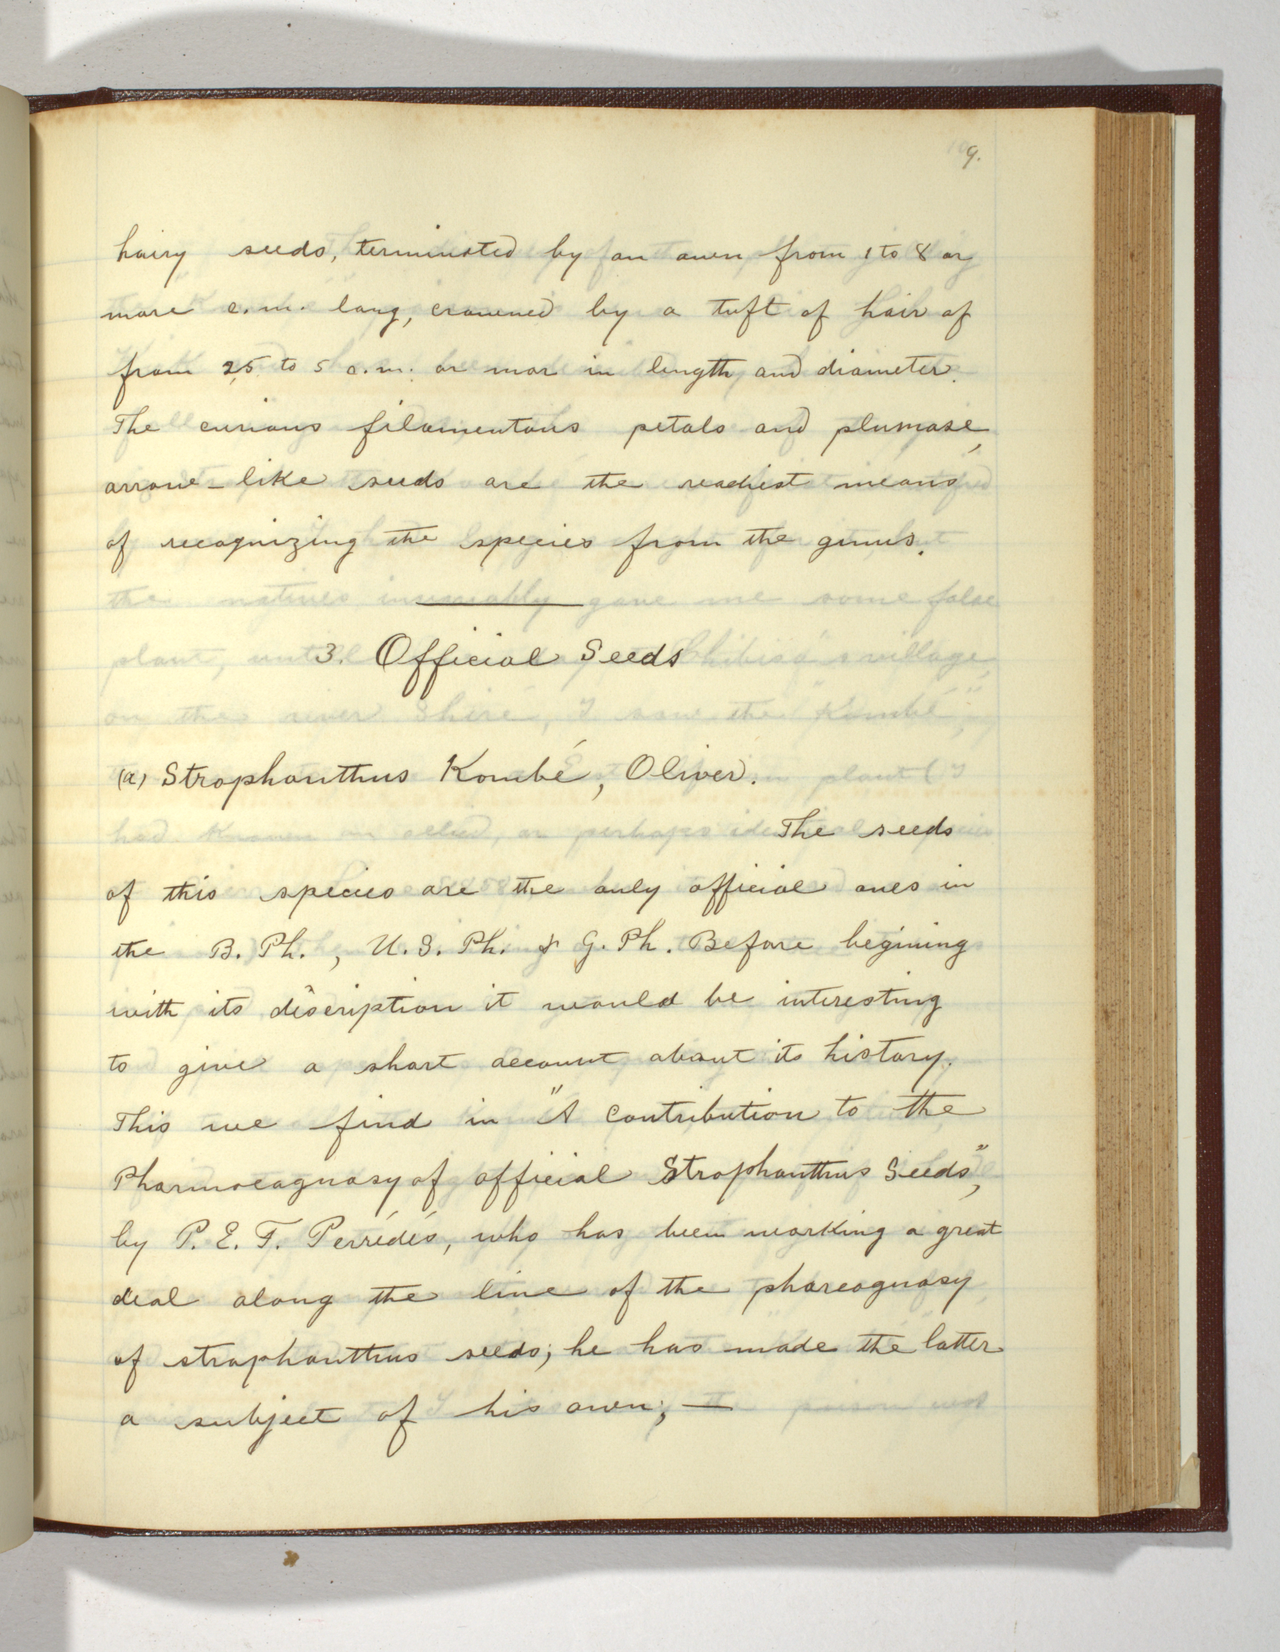 9.
hairy seeds, terminated by an awn from 1 to 8 or
more c.m. long, crowned by a tuft of hair of
from 2.5 to 5 c.m. or mor in length and diameter.
The curious filamentous petals and plumose,
arrow-like seeds are the readiest means
of recognizing the species from the genus.
3. Official Seeds
(a) Strophanthus Kombé, Oliver.
The seeds
of this species are the only official ones in
the B. Ph., U. S. Ph. & G. Ph. Before begining
with its discription it would be interesting
to give a short account about its history.
This we find in "A Contribution to the
Pharmocagnosy of official Strophanthus Seeds",
by P. E. F. Perrédés, who has been working a great
deal along the line of the pharcagnosy
of strophanthus seeds; he has made the latter
a subject of his own; —